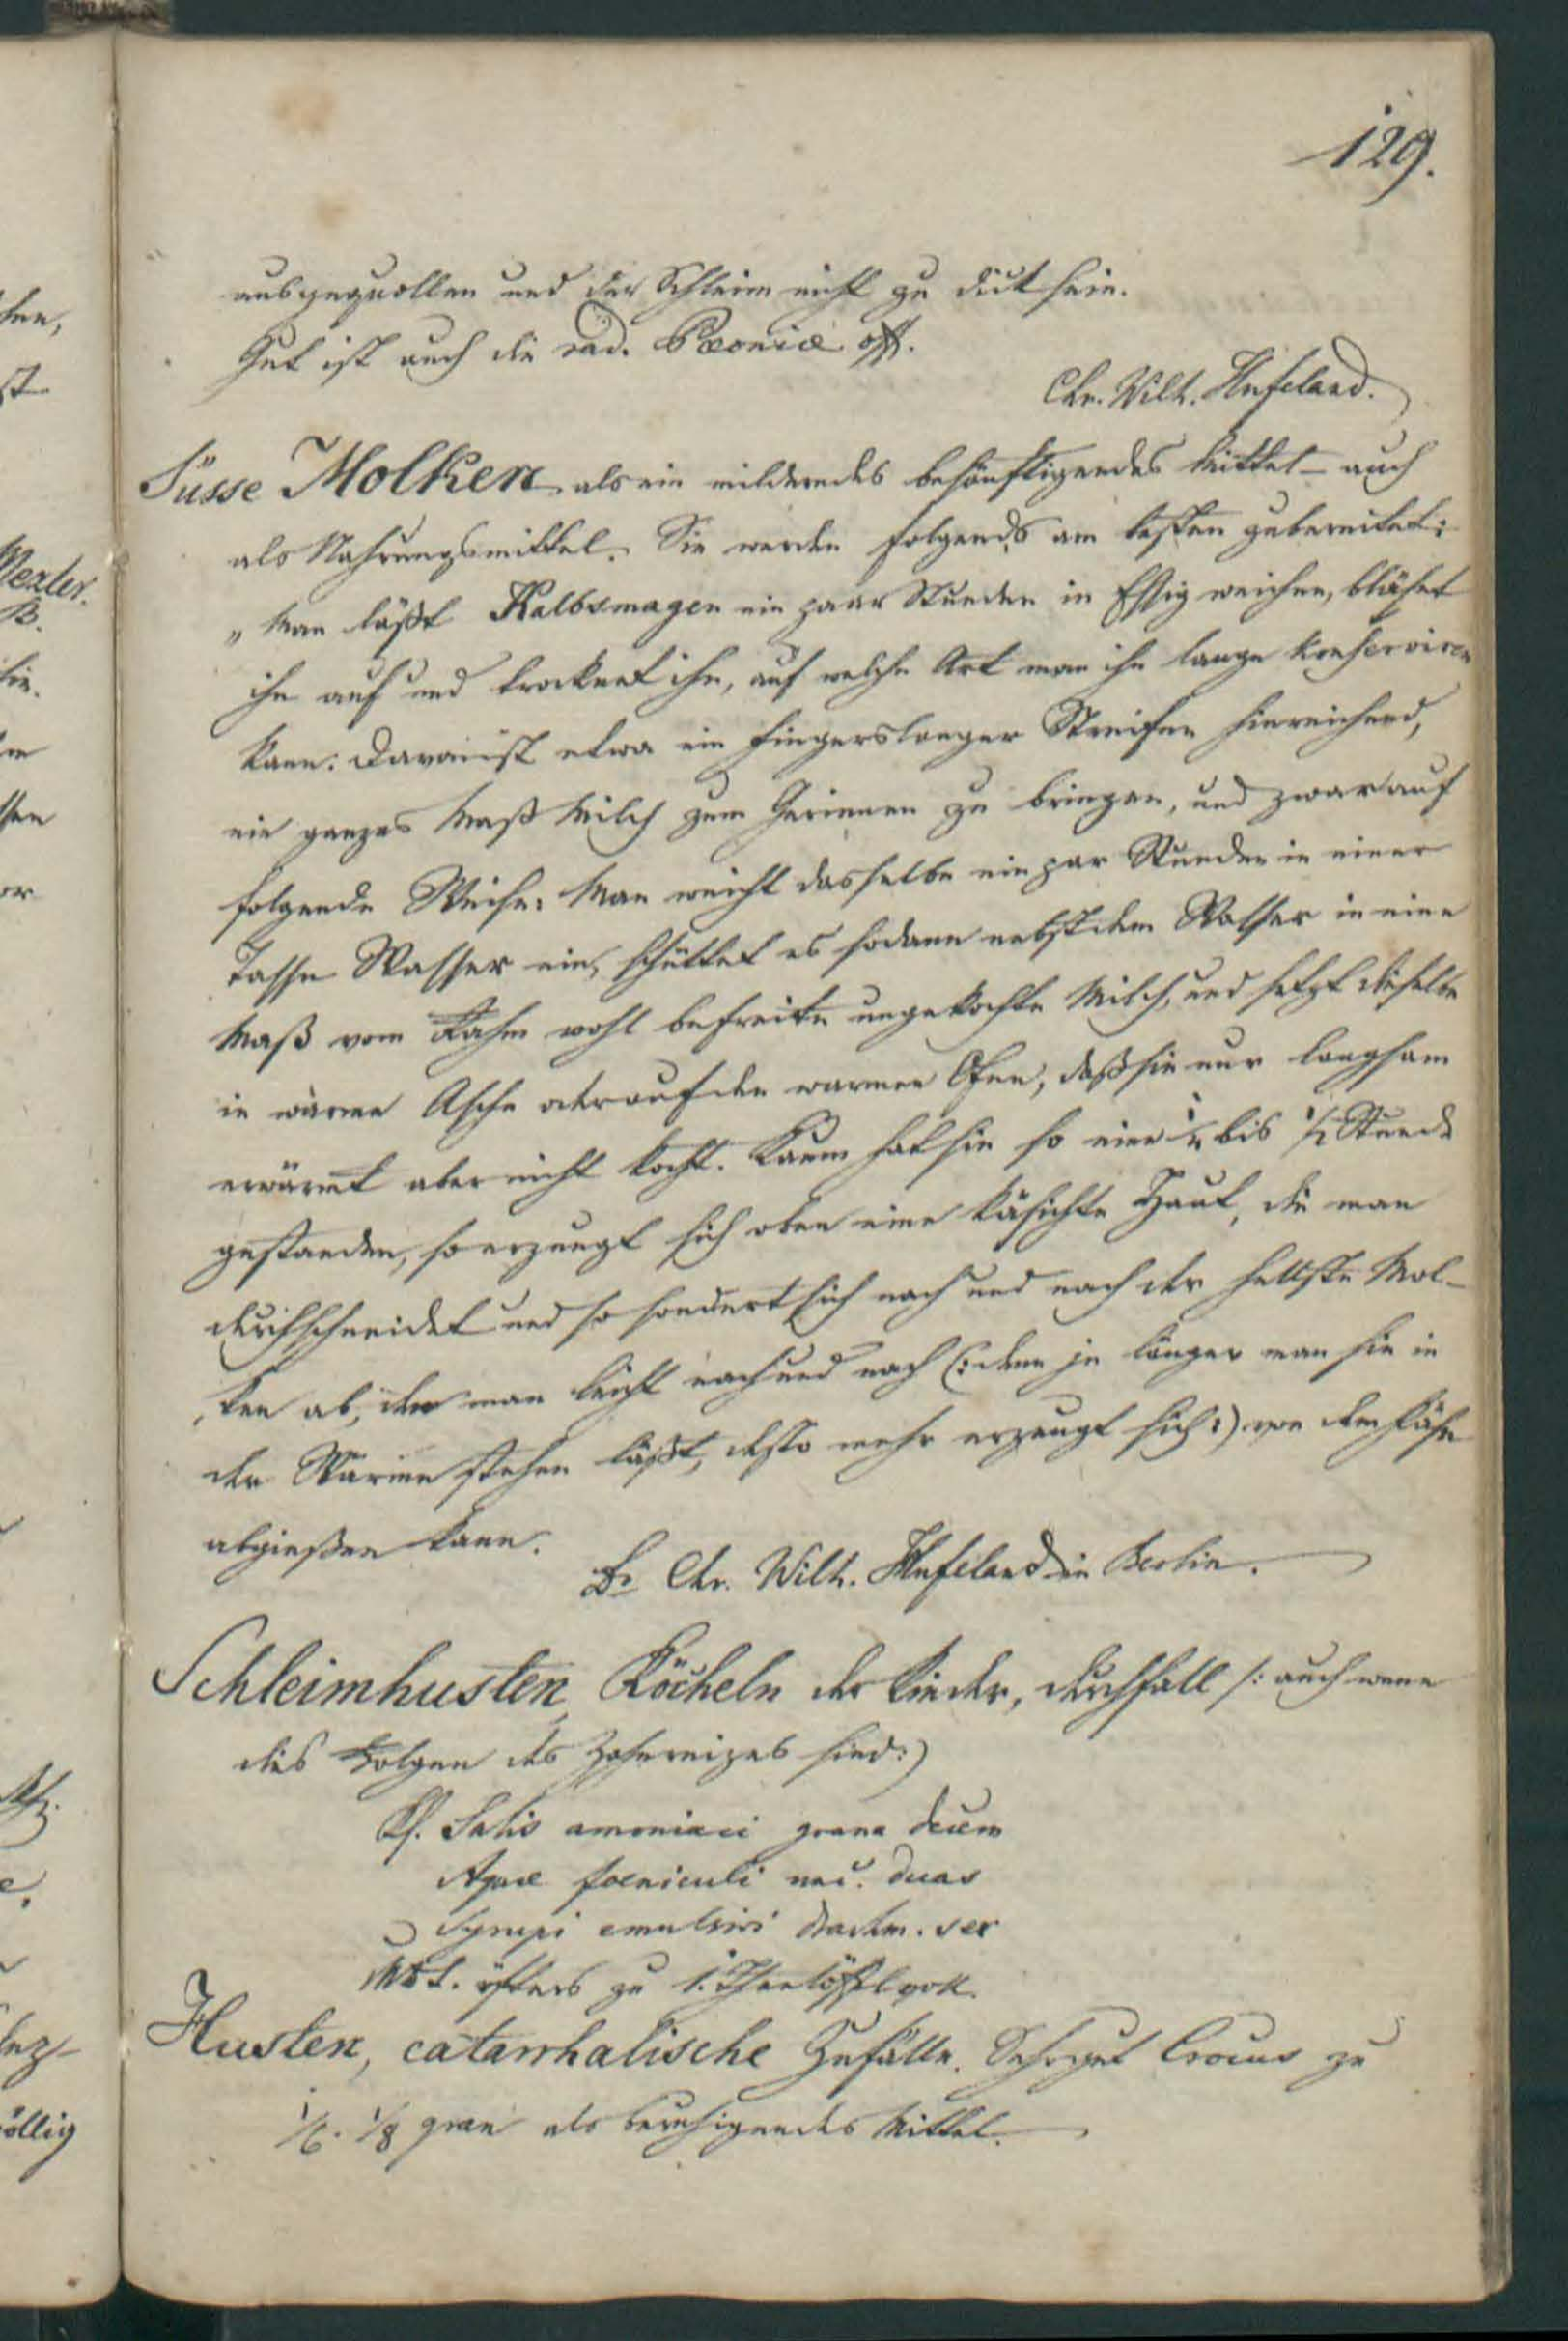 129.
ausgequollen und der Schleim nicht zu dick sein.
Gut ist auch die rad. Pæoniæ off.
Chr. Wilh. Hufeland.
Süsse Molken als ein milderndes besänftigendes Mittel – auch
als Nahrungsmittel. Sie werden folgends am besten zubereitet:
„ Man läßt Kalbsmagen ein paar Stunden in Essig weichen, bläset
ihn auf und trocknet ihn, auf welche Art man ihn lange konserviren
kann. Davon ist etwa ein fingerslanger Streifen hinreichend,
ein ganzes Maß Milch zum Gerinnen zu bringen, und zwar auf
folgende Weise: Man weicht dasselbe ein par Stunden in einer
Tasse Wasser ein, schüttet es sodann nebst dem Wasser in eine
Maß vom Rahm wohl befreite ungekochte Milch, und setzt dieselbe
in warme Asche oder auf den warmen Ofen, daß sie nur langsam
erwärmt aber nicht kocht. Kaum hat sie so eine ¼ bis ½ Stunde
gestanden, so erzeugt sich oben eine käsichte Haut, die man
durchschneidet und so sondert sich nach und nach der hellste Mol-
ken ab, den man leicht nach und nach (: denn je länger man sie in
der Wärme stehen läßt, desto mehr erzeugt sich :) von dem Käse
abgießen kann.
Dr Chr. Wilh. Hufeland in Berlin.
Schleimhusten, Röcheln der Kinder, Durchfall /: auch wenn
dies Folgen des Zahnreizes sind :)
Rf. Salis amoniaci grana decem
Aquæ foeniculi unc. duas
Syrupi emulsivi drachm. sex
MDS. öfters zu 1. Theelöffel voll.
Husten, catarrhalische Zufälle. Sehr gut Crocus zu
1/6. 1/8 gran als beruhigendes Mittel.
Mezler.
B.
öllig